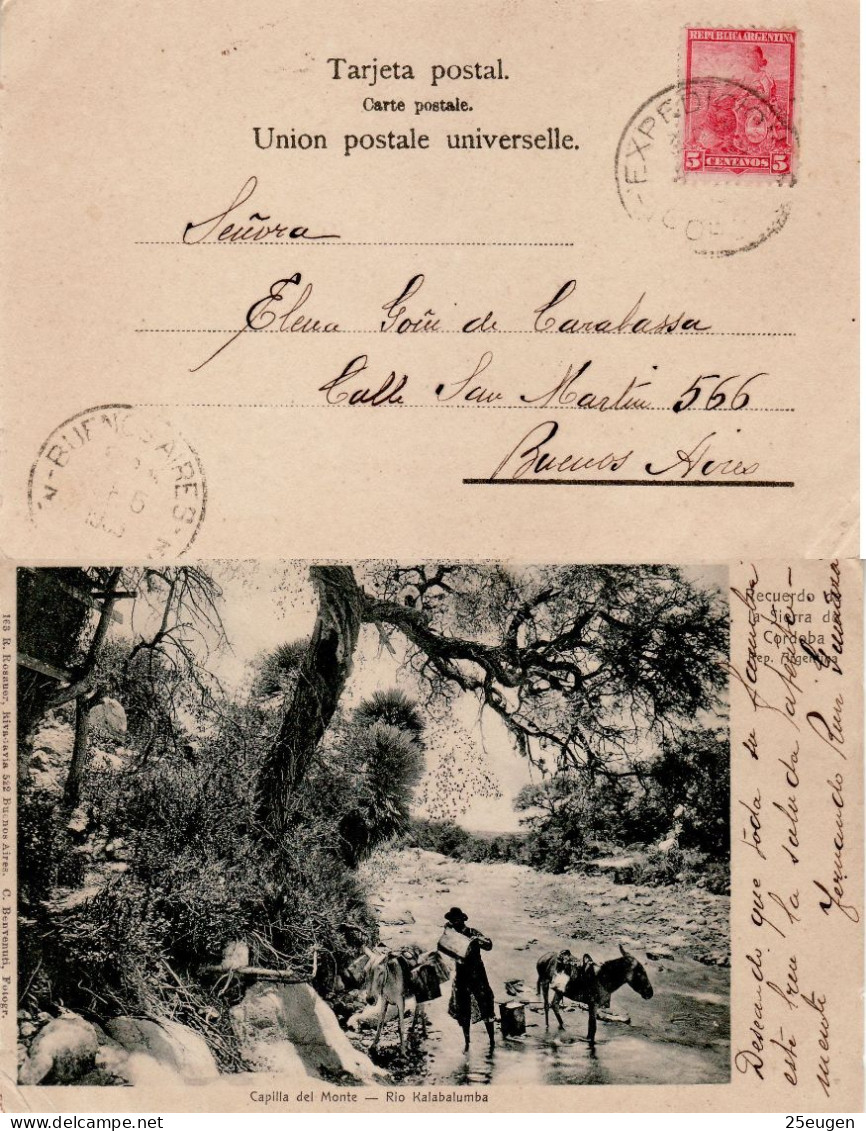 REPUBLICA ARGENTINA
5 CENTAVOS 5
Tarjeta postal.
Carte postale.
Union postale universelle.
EXPEDICION
Señora
Elena Goñi de Carabassa
Calle San Martin 566
Buenos Aires
BUENOS AIRES
5
Recuerdo
Sierra de
Cordoba
Rep. Argentina
165 R. Rosauer, Rivadavia 522 Buenos Aires. C. Benvenuti, Fotogr.
Deseando que toda su familia
esté bien la saluda
mente Fernando
Capilla del Monte — Rio Kalabalumba
25eugen